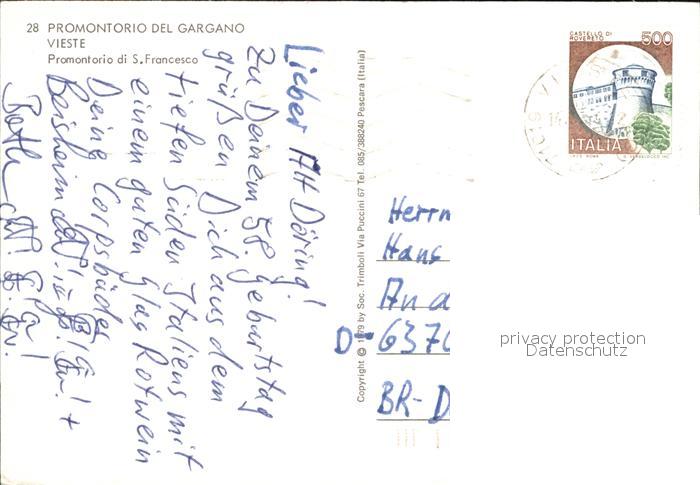 28 PROMONTORIO DEL GARGANO
VIESTE
Promontorio di S. Francesco
Lieber AH Döring!
Zu Deinem 58. Geburtstag
grüßen Dich aus dem
tiefen Süden Italiens mit
einem guten Glas Rotwein
Deine Corpsbrüder
Beisheim
Copyright © 1979 by Soc. Trimboli Via Puccini 67 Tel. 085/388240 Pescara (Italia)
CASTELLO DI
ROVERETO
500
ITALIA
Herrn
Hans
D-6370
BR-D
privacy protection
Datenschutz